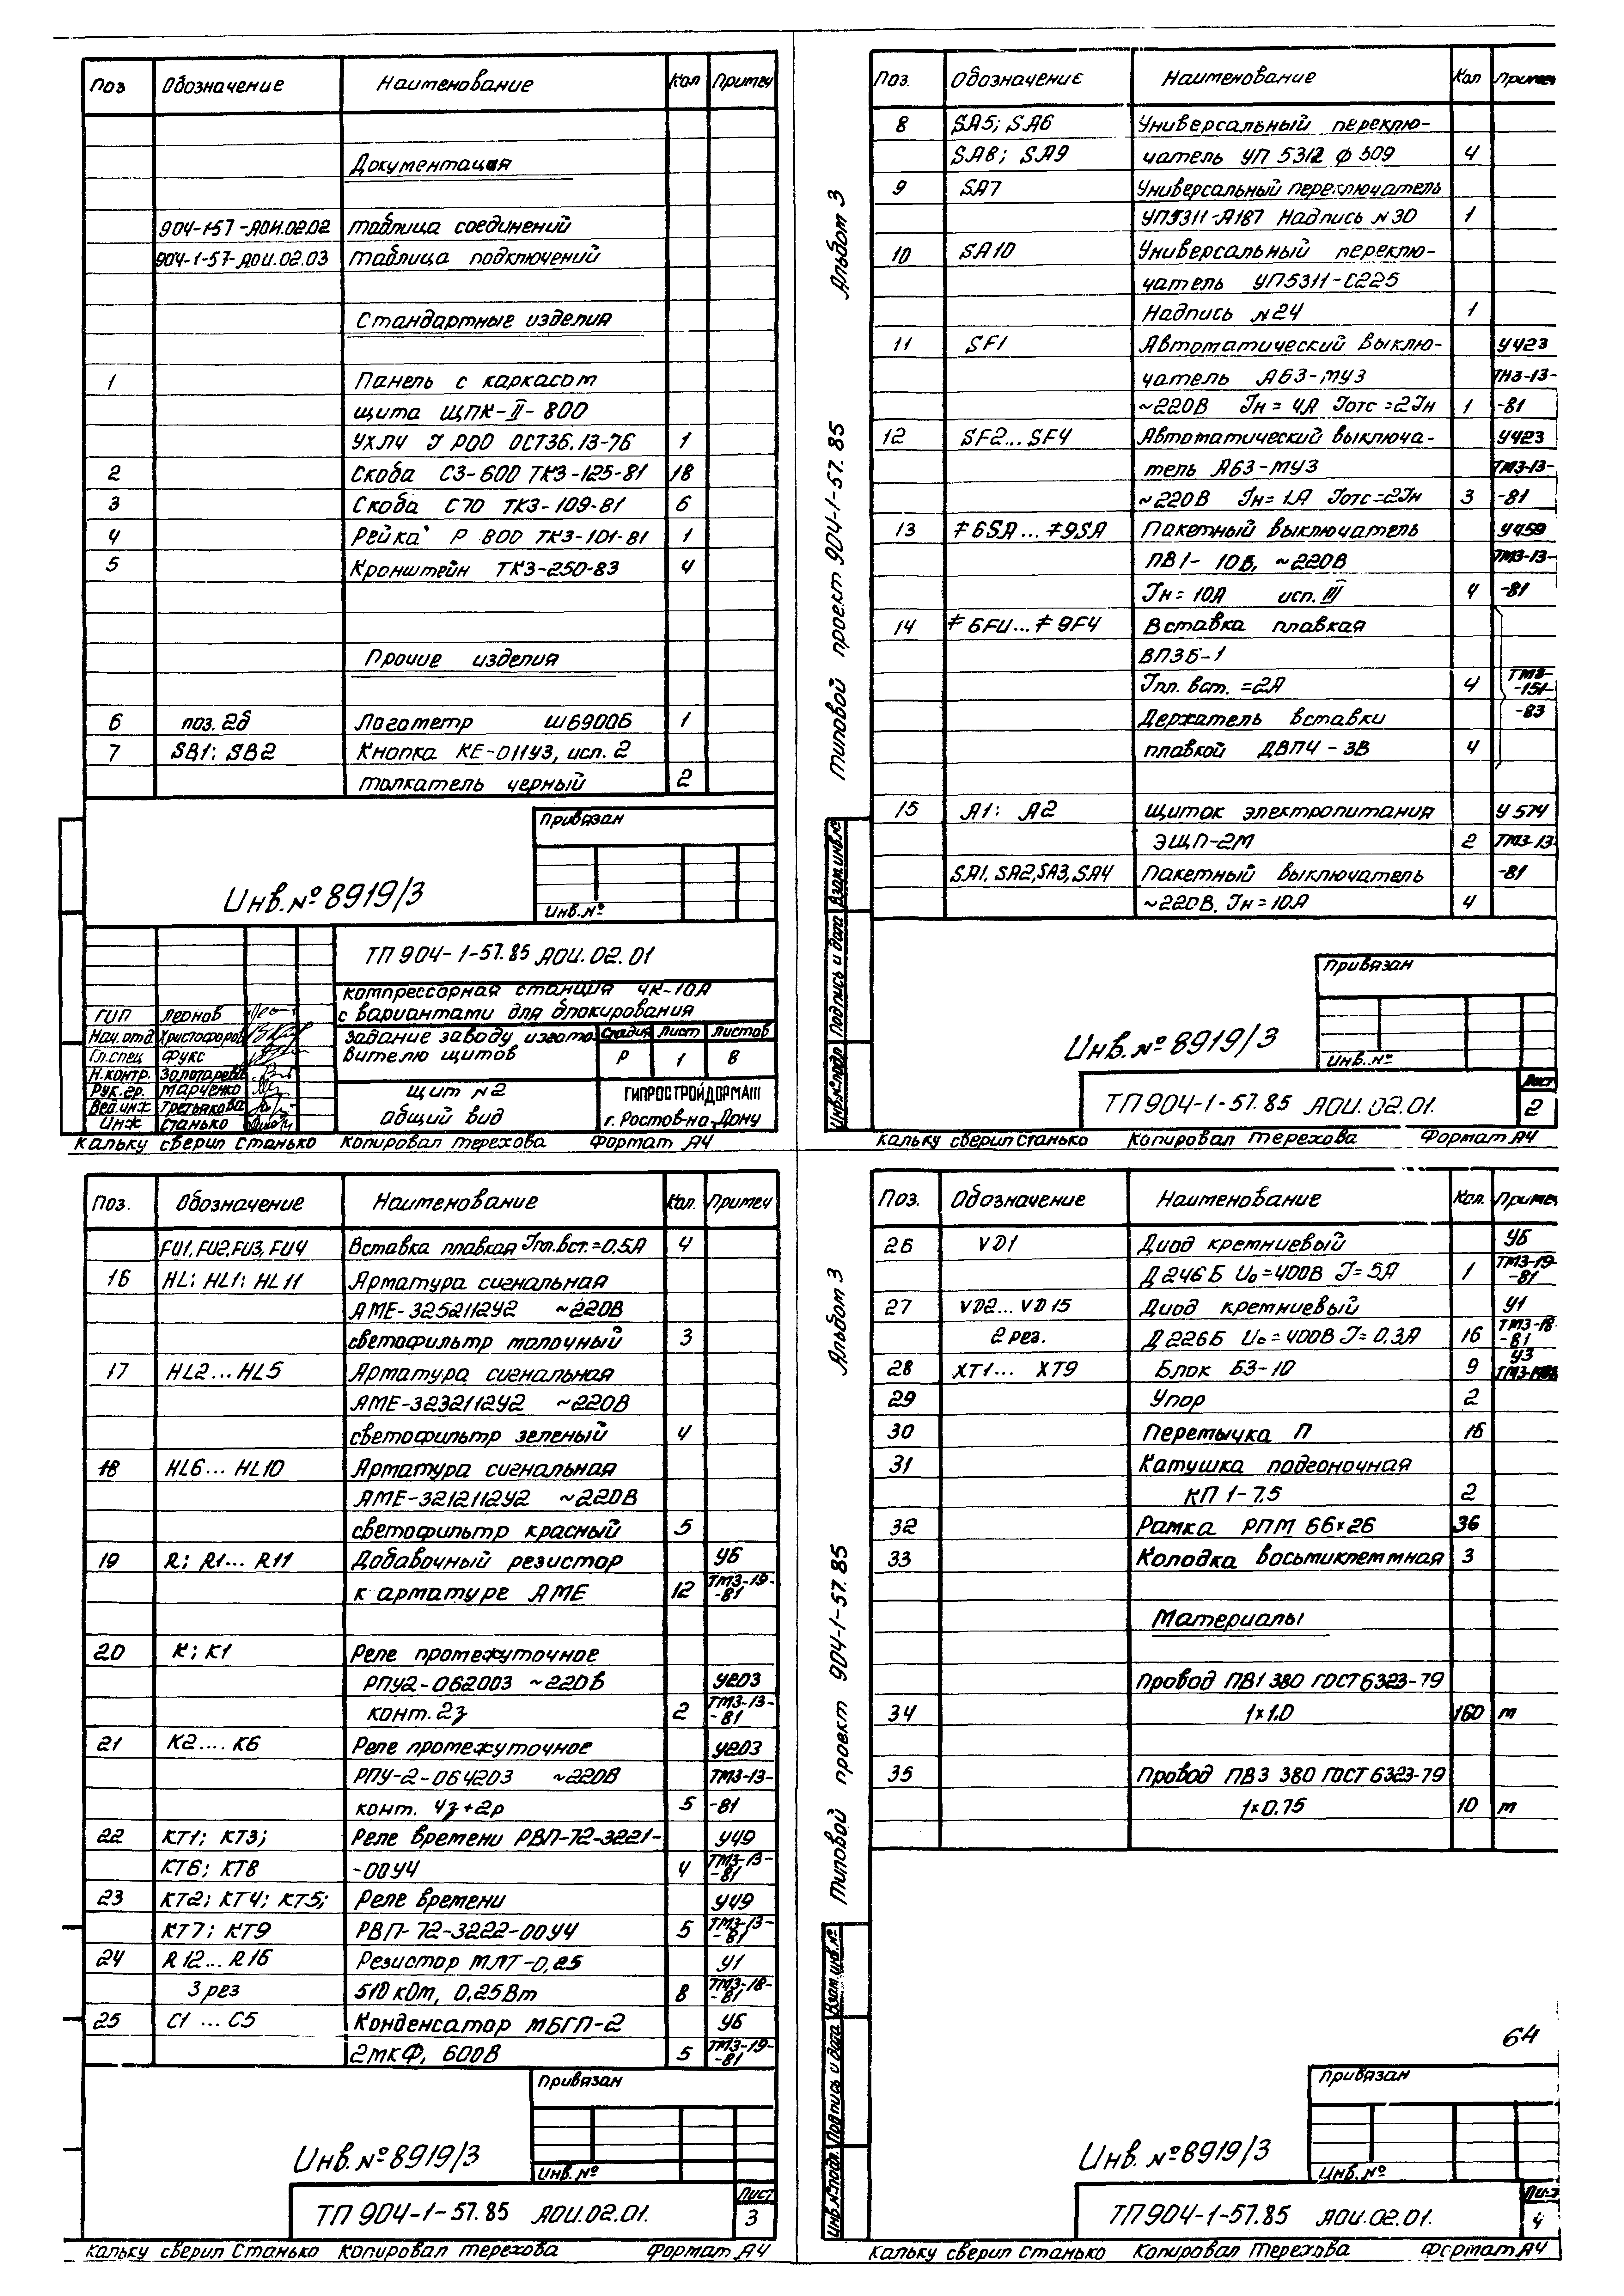 Поз Обозначение Наименование Кол Примеч
Документация
904-1-57-АОИ.02.02 Таблица соединений
904-1-57-АОИ.02.03 Таблица подключений
Стандартные изделия
1 Панель с каркасом
щита ЩПК-II-800
УХЛ4 I Р00 ОСТ36.13-76 1
2 Скоба С3-600 ТК3-125-81 18
3 Скоба С70 ТК3-109-81 6
4 Рейка Р 800 ТК3-101-81 1
5 Кронштейн ТК3-250-83 4
Прочие изделия
6 поз. 2б Логометр Ш69006 1
7 SB1; SB2 Кнопка КЕ-011У3, исп. 2
толкатель черный 2
Привязан
Инв.№
Инв.№ 8919/3
ТП 904-1-57.85 АОИ.02.01
Компрессорная станция 4К-10А
с вариантами для блокирования
Задание заводу изгото-
вителю щитов
Стадия Лист Листов
Р 1 8
Щит №2
Общий вид
ГИПРОСТРОЙДОРМАШ
г. Ростов-на-Дону
ГИП Леонов
Нач.отд. Христофоров
Гл.спец Фукс
Н.контр. Золотарева
Рук.гр. Марченко
Вед.инж Третьякова
Инж Станько
Кальку сверил Станько Копировал Терехова Формат А4
Альбом 3
Типовой проект 904-1-57.85
Поз. Обозначение Наименование Кол Примеч
8 SA5; SA6 Универсальный переклю-
SA8; SA9 чатель УП 5312 Ф 509 4
9 SA7 Универсальный переключатель
УП5311-А187 Надпись №30 1
10 SA10 Универсальный переклю-
чатель УП5311-С225
Надпись №24 1
11 SF1 Автоматический выклю- У423
чатель А63-МУ3 ТМ3-13-
~220В Iн = 4А Iотс =2Iн 1 -81
12 SF2...SF4 Автоматический выключа- У423
тель А63-МУ3 ТМ3-13-
~220В Iн = 1А Iотс=2Iн 3 -81
13 ≠6SA...≠9SA Пакетный выключатель У459
ПВ1-10Б, ~220В ТМ3-13-
Iн = 10А исп. III 4 -81
14 ≠6FU...≠9F4 Вставка плавкая
ВП3Б-1
Iпл. вст. =2А 4 ТМ3-
-151-
Держатель вставки -83
плавкой ДВП4-3В 4
15 А1; А2 Щиток электропитания У 574
ЭЩП-2М 2 ТМ3-13-
SA1, SA2, SA3, SA4 Пакетный выключатель -81
~220В, Iн = 10А 4
Привязан
Инв.№
Инв.№ 8919/3
ТП 904-1-57.85 АОИ.02.01.
Лист
2
Инв.№ подл Подпись и дата Взам.инв.№
Кальку сверил Станько Копировал Терехова Формат А4
Поз. Обозначение Наименование Кол. Примеч
FU1, FU2, FU3, FU4 Вставка плавкая Iпл.вст.=0,5А 4
16 HL; HL1; HL11 Арматура сигнальная
АМЕ-3252112У2 ~220В
светофильтр молочный 3
17 HL2...HL5 Арматура сигнальная
АМЕ-3232112У2 ~220В
светофильтр зеленый 4
18 HL6...HL10 Арматура сигнальная
АМЕ-3212112У2 ~220В
светофильтр красный 5
19 R; R1... R11 Добавочный резистор У6
к арматуре АМЕ 12 ТМ3-19-
-81
20 К; К1 Реле промежуточное
РПУ2-062003 ~220В У203
конт. 2з 2 ТМ3-13-
-81
21 К2....К6 Реле промежуточное У203
РПУ-2-064203 ~220В ТМ3-13-
конт. 4з+2р 5 -81
22 КТ1; КТ3; Реле времени РВП-72-3221- У49
КТ6; КТ8 -00У4 4 ТМ3-13-
-81
23 КТ2; КТ4; КТ5; Реле времени У49
КТ7; КТ9 РВП-72-3222-00У4 5 ТМ3-13-
-81
24 R12...R16 Резистор МЛТ-0,25 У1
3 рез 510 кОм, 0,25Вт 8 ТМ3-18-
-81
25 С1 ...С5 Конденсатор МБГП-2 У6
2мкФ, 600В 5 ТМ3-19-
-81
Привязан
Инв.№
Инв.№ 8919/3
ТП 904-1-57.85 АОИ.02.01.
Лист
3
Кальку сверил Станько Копировал Терехова Формат А4
Альбом 3
Типовой проект 904-1-57.85
Поз. Обозначение Наименование Кол. Примеч
26 VD1 Диод кремниевый У6
Д 246 Б Uо =400В I= 5А 1 ТМ3-19-
-81
27 VD2... VD15 Диод кремниевый У1
2 рез. Д 226Б Uо =400В I= 0.3А 16 ТМ3-18-
-81
28 ХТ1... ХТ9 Блок Б3-10 9 У3
29 Упор 2
30 Перемычка П 16
31 Катушка подгоночная
КП 1-7.5 2
32 Рамка РПМ 66×26 36
33 Колодка восьмиклеммная 3
Материалы
Провод ПВ1 380 ГОСТ 6323-79
34 1×1.0 160 м
35 Провод ПВ3 380 ГОСТ 6323-79
1×0.75 10 м
64
Привязан
Инв.№
Инв.№ 8919/3
ТП 904-1-57.85 АОИ.02.01.
Лист
4
Инв.№ подл. Подпись и дата Взам.инв.№
Кальку сверил Станько Копировал Терехова Формат А4